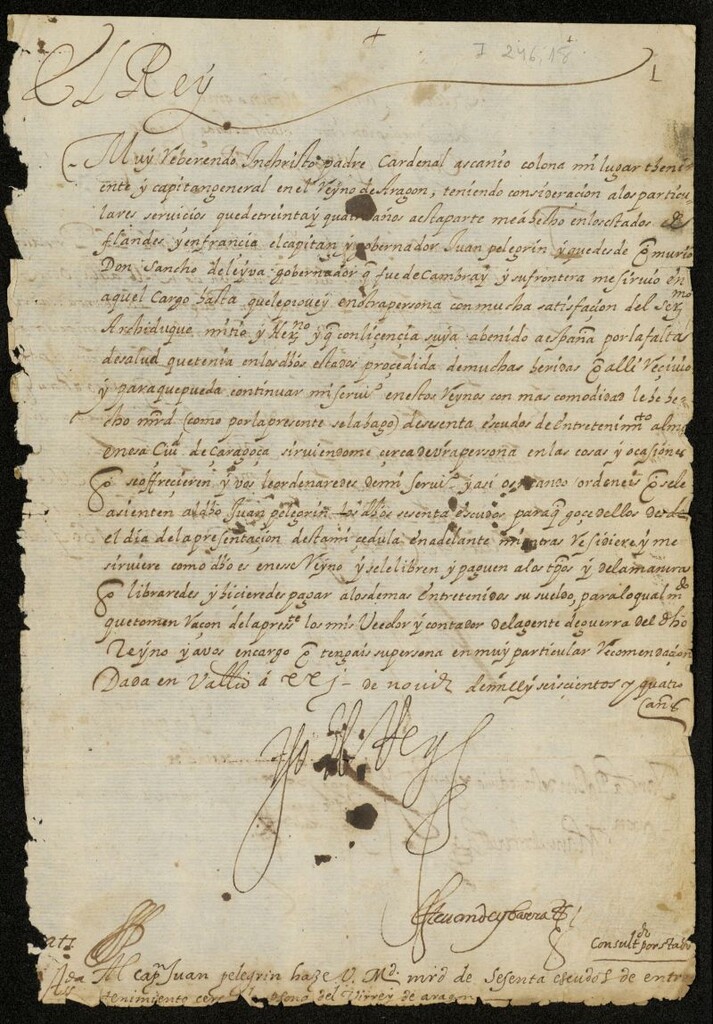 I 246, 18
1
El Rey
Muy Reverendo Inchristo padre Cardenal ascanio colona mi lugar theni
ente y capitangeneral en el Reyno de Aragon, teniendo consideracion alos particu
lares servicios quedetreintay quatro años aestaparte meahecho enlosestados de
flandes yenfrancia elcapitan y gobernador Juan pelegrin y quedesde q murio
Don Sancho deleyva gobernador q fue de Cambray y sufrontera mesiruio en
aquel Cargo hasta queleprovey enotrapersona conmucha satisfacion del Sermo
Archiduque mitio y Hermno y q conlicencia suya abenido aespaña porlafalta
desalud quetenia enlosdhos estados procedida demuchas heridas q alli Recivio
y paraquepueda continuar miservio enestos Reynos con mas comodidad lehe he
cho mrd (como porlapresente selahago) desesenta escudos de Entretenimto al mes
enesa Ciud de Caragoça sirviendome cercadevrapersona enlas cosas y ocasiones
q seoffrecieren y vos leordenaredes demi servio y asi os mando ordeneis q sele
asienten aldho Juan pelegrin los dhos sesenta escudos paraq goce dellos desde
el dia delapresentacion destami cedula enadelante mientras Residiere y me
sirviere como dho es enese Reyno y selelibren y paguen alos tpos y delamanera
q libraredes y hicieredes pagar alosdemas Entretenidos su sueldo, paraloqual mdo
quetomen Raçon delapreste los mis Veedor y contador delagente deguerra del dho
Reyno y avos encargo q tengais supersona enmuy particular Recomendacion
Dada en Vallid á XXJ de novie demill y seiscientos y quatro
años
Yo el Rey
Estevan de ybarra
Consultdo por stado
Al capn Juan pelegrin haze V. Md. mrd de sesenta escudos de entre
tenimiento cerca la persona del Virrey de aragon